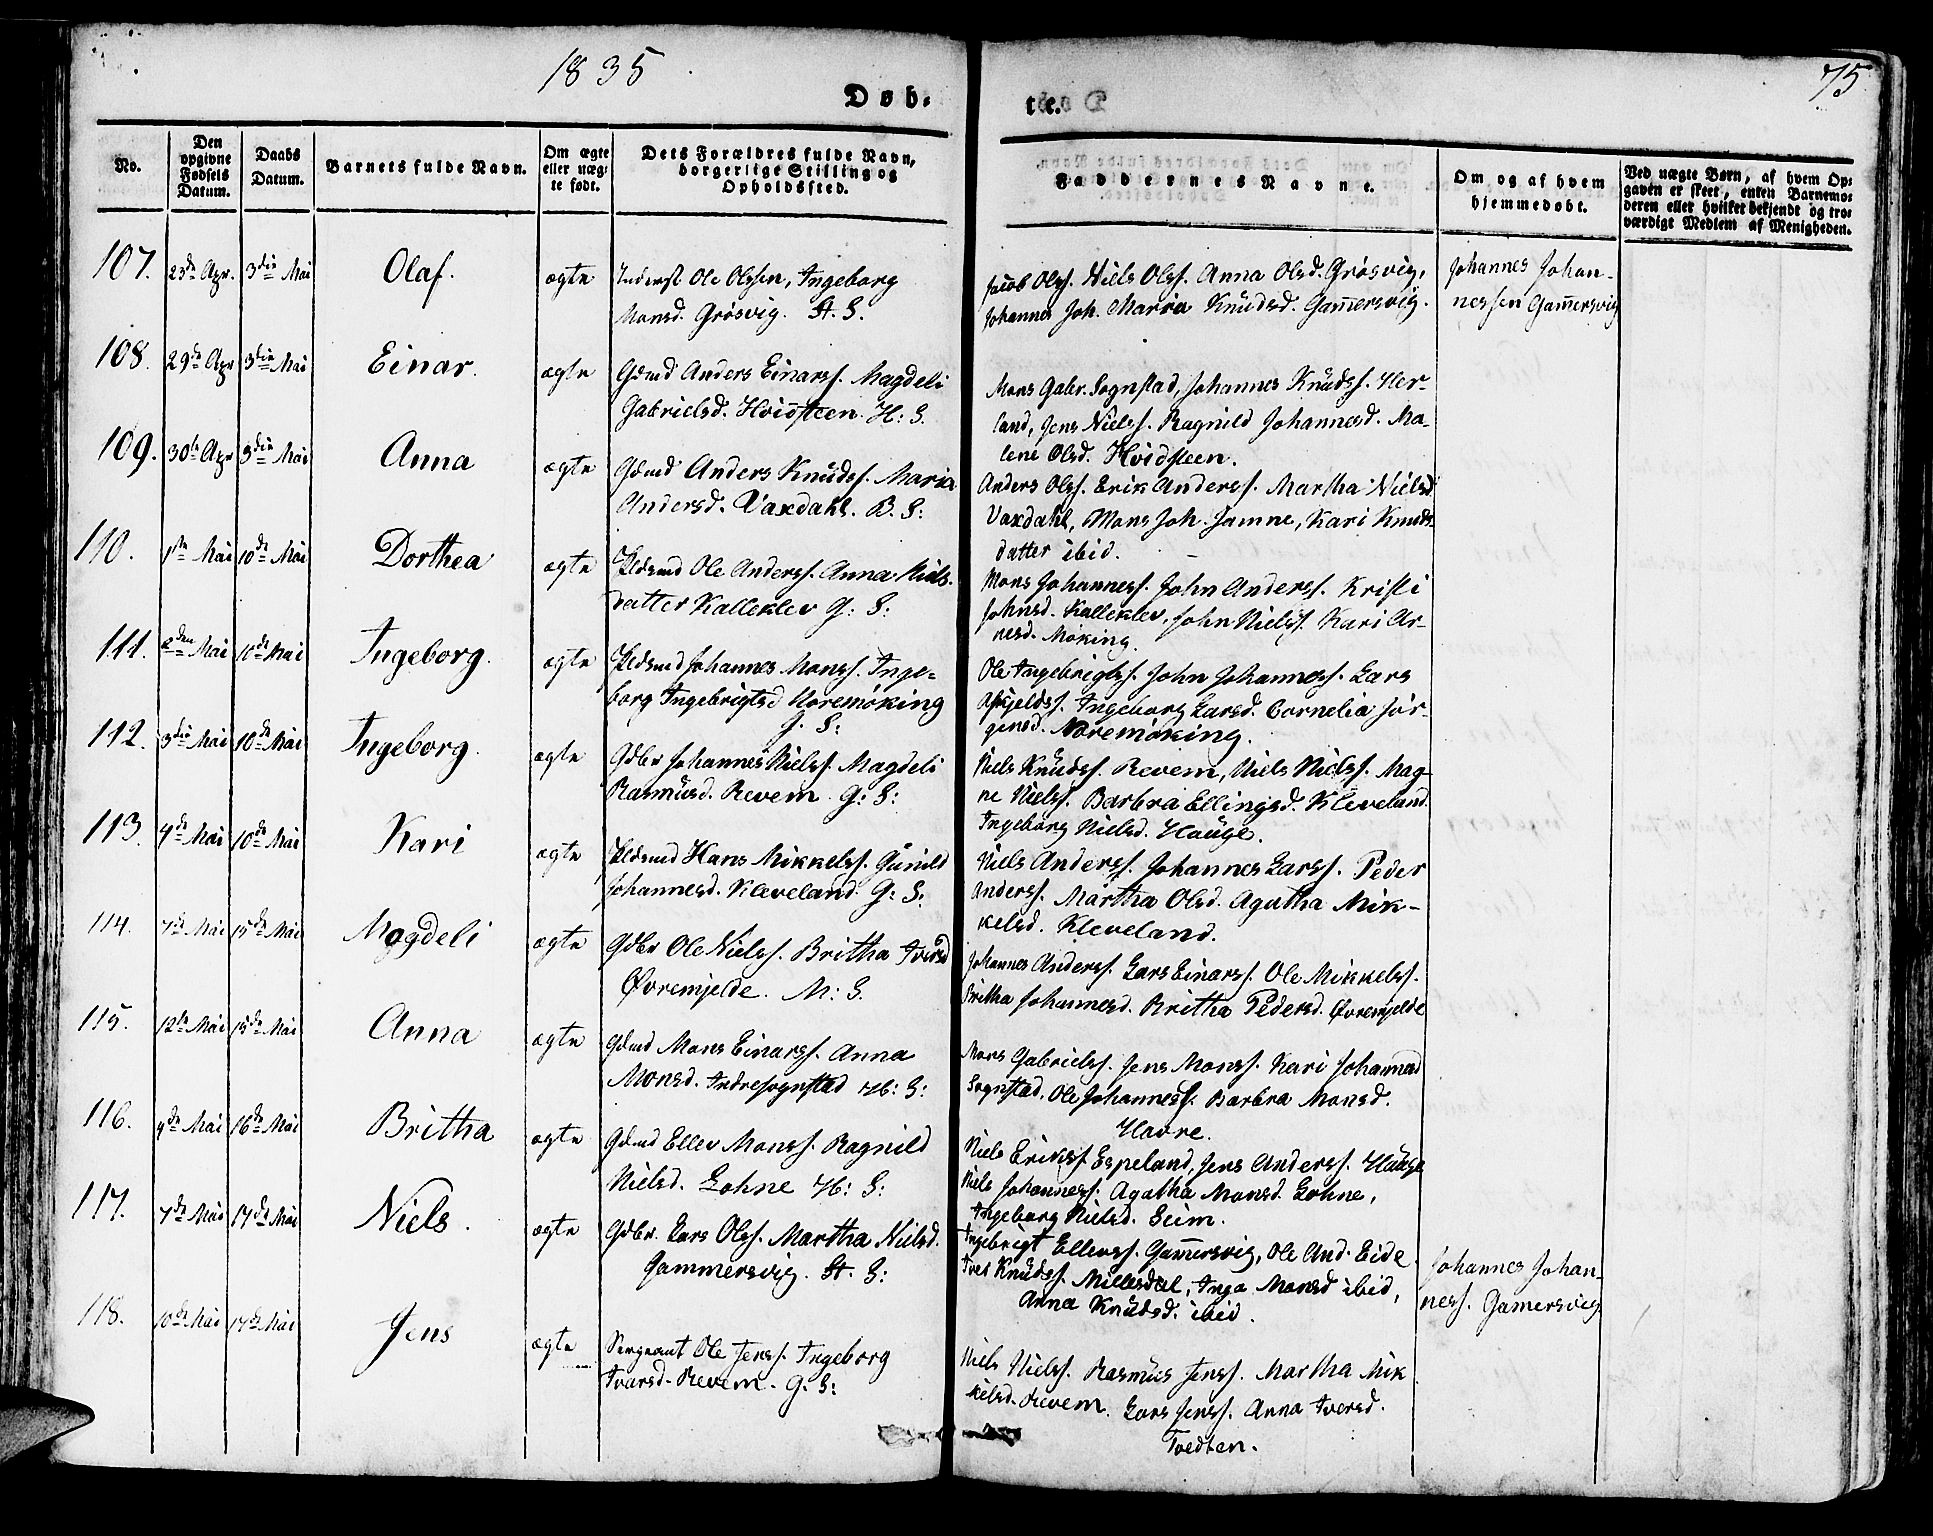 1835
75
Døb-
te.
No.
Den opgivne Fødsels Datum.
Daabs Datum.
Barnets fulde Navn.
Om ægte eller uægte født.
Dets Forældres fulde Navn, borgerlige Stilling og Opholdssted.
Faddernes Navne.
Om og af hvem hjemmedøbt.
Ved uægte Børn, af hvem Opgaven er skeet, enten Barnemoderen eller hvilket bekjendt og troværdigt Medlem af Menigheden.
107. 23de Apr. 3die Mai Olaf. ægte Inderst Ole Olssen, Ingeborg
Monsd. Grøsvig. St. S.
Jacob Olss. Niels Olss. Anna Olsd. Grøsvig,
Johannes Joh. Maria Knudsd. Gam̅ersvig.
Johannes Johan-
nessen Gam̅ersvig
108. 29de Apr 3die Mai Einar. ægte Gdmd Anders Einarss. Magdeli
Gabrielsd. Hvidsteen. H: S.
Mons Gabr. Sognstad, Johannes Knudss. Her-
land, Jens Nielss. Ragnild Johannesd. Ma-
lene Olsd. Hvidsteen.
109. 30te Apr 3die Mai Anna ægte Gdmd Anders Knudss. Maria
Andersd. Vaxdahl. B. S:
Anders Olss. Erik Anderss. Martha Nielsd
Vaxdahl, Mons Joh. Jamne, Kari Knuds-
datter ibid.
110. 1ste Mai 10de Mai Dorthea ægte Pldsmd Ole Anderss. Anna Niels-
datter Kalleklev G: S:
Mons Johanness. John Anderss. Kristi
Johnsd. Kalleklev, John Nielss. Kari Ar-
nesd. Møking.
111. 2den Mai 10de Mai Ingeborg. ægte Pldsmd Johannes Monss. Inge-
borg Ingebrigtsd Noremøking
G. S:
Ole Ingebrigtss. John Johanness. Lars
Askjeldss. Ingeborg Larsd. Cornelia Jør-
gensd. Noremøking.
112. 3die Mai 10de Mai Ingeborg. ægte Gdbr Johannes Nielss. Magdeli
Rasmusd. Revem. G: S:
Niels Knudss. Revem, Niels Nielss. Mag-
ne Nielss. Barbra Ellingsd. Kleveland.
Ingeborg Nielsd. Hauge.
113. 4de Mai 10de Mai Kari ægte Pldsmd Hans Mikkelss. Gunild
Johannesd. Kleveland. G: S:
Niels Anderss. Johannes Larss. Peder
Anderss. Martha Olsd. Agatha Mik-
kelsd. Kleveland.
114. 7de Mai 15de Mai Magdeli ægte Gdbr Ole Nielss. Britha Iversd
Øvremjelde. M: S.
Johannes Anderss. Lars Einarss. Ole Mikkelss.
Britha Johannesd. Britha Pedersd. Øvremjelde
115. 12te Mai 15de Mai Anna ægte Gdmd Mons Einarss. Anna
Monsd. Indresognstad H: S:
Mons Gabrielss. Jens Monss. Kari Johannesd
Sognstad, Ole Johanness. Barbra Monsd.
Havre.
116. 9de Mai 16de Mai Britha ægte Gdmd Ellev Monss. Ragnild
Nielsd. Lohne H: S:
Niels Erikss. Espeland, Jens Anderss. Hauge
Niels Johanness. Agatha Monsd. Lohne,
Ingeborg Nielsd. Seim.
117. 7de Mai 17de Mai Niels. ægte Gdbr. Lars Olss. Martha Nielsd.
Gammersvig. St. S:
Ingebrigt Ellevss. Gam̅ersvig, Ole And. Eide
Knudss. Millesdal, Inga Monsd ibid,
Anna Knudsd. ibid.
Johannes Johan-
ness. Gamersvig
118. 10de Mai 17de Mai Jens ægte Sergeant Ole Jenss. Ingeborg
Ivarsd. Revem. G: S:
Niels Nielss. Rasmus Jenss. Martha Mik
kelsd. Revem. Lars Jenss. Anna Iversd.
Tvedten.